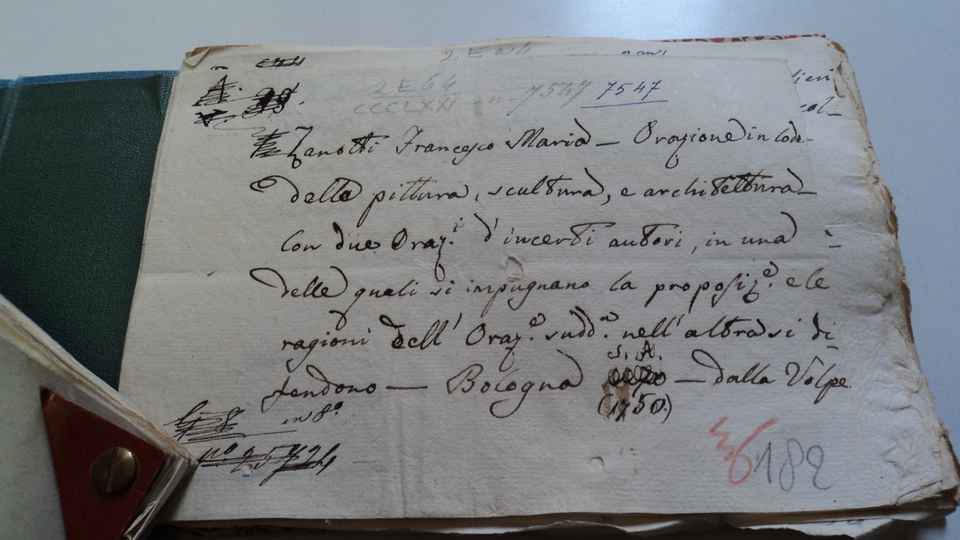 2 E 64
CCCLXXI n. 7547 7547
Zanotti Francesco Maria — Orazione in lode
delle pittura, scultura, e architettura
con due Oraz.i d'incerti autori, in una
delle quali si impugnano la proposiz.e e le
ragioni dell' Oraz.e sudd.a nell'altra si di-
fendono — Bologna S. A. — dalla Volpe
(1750.)
in 8°
182